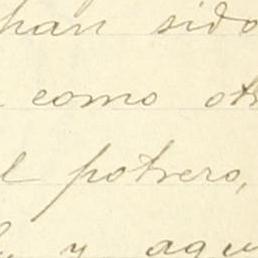 han sido
como otr
el potrero,
y aqu